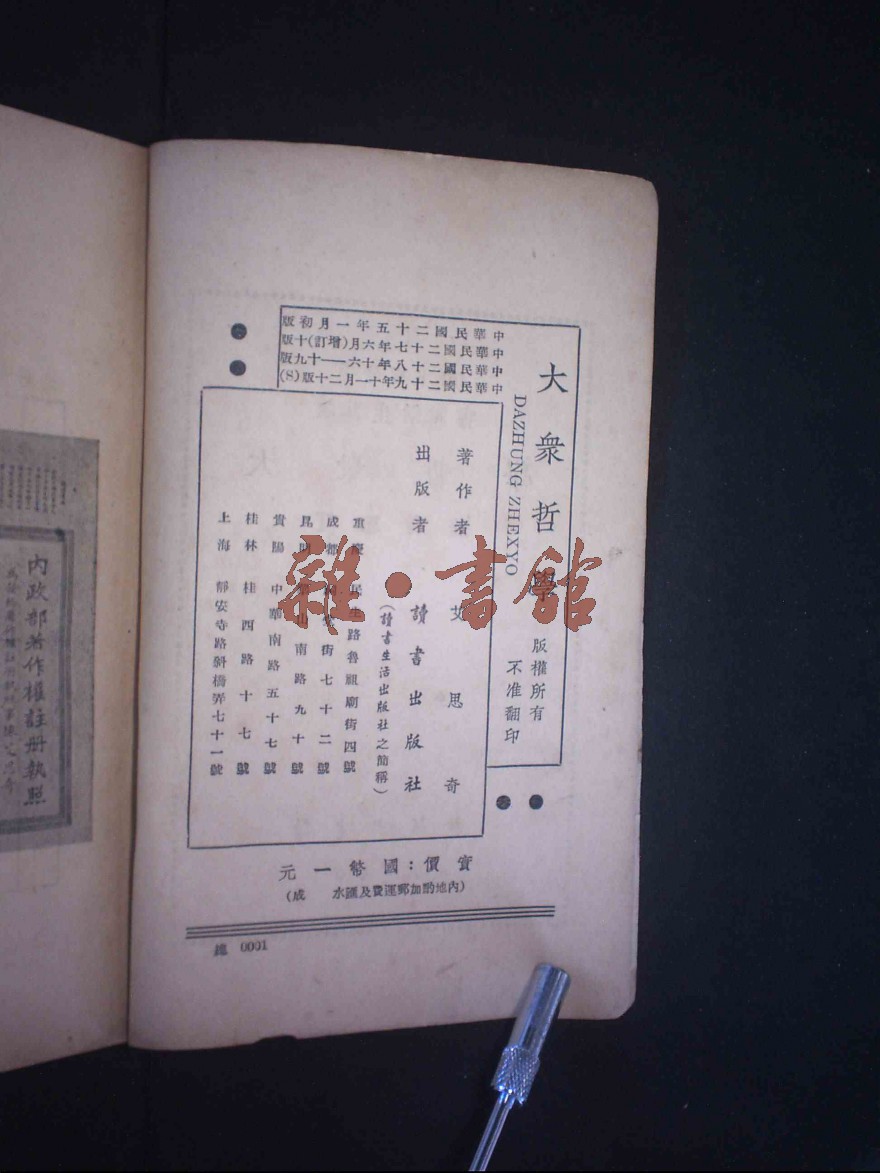 中華民國二十五年一月初版
中華民國二十七年六月(增訂)十版
中華民國二十八年十六——十九版
中華民國二十九年十一月二十版(S)
大衆哲學
DAZHUNG ZHEXYO
版權所有
不准翻印
著作者 艾思奇
出版者 讀書出版社
(讀書生活出版社之簡稱)
重慶 民生路魯祖廟街四號
成都 街七十二號
昆明 山南路九十號
貴陽 中華南路五十七號
桂林 桂四路十七號
上海 靜安寺路斜橋弄七十一號
實價:國幣一元
(內地酌加郵運費及匯水 成)
總 0001
內政部著作權註册執照
雜·書館